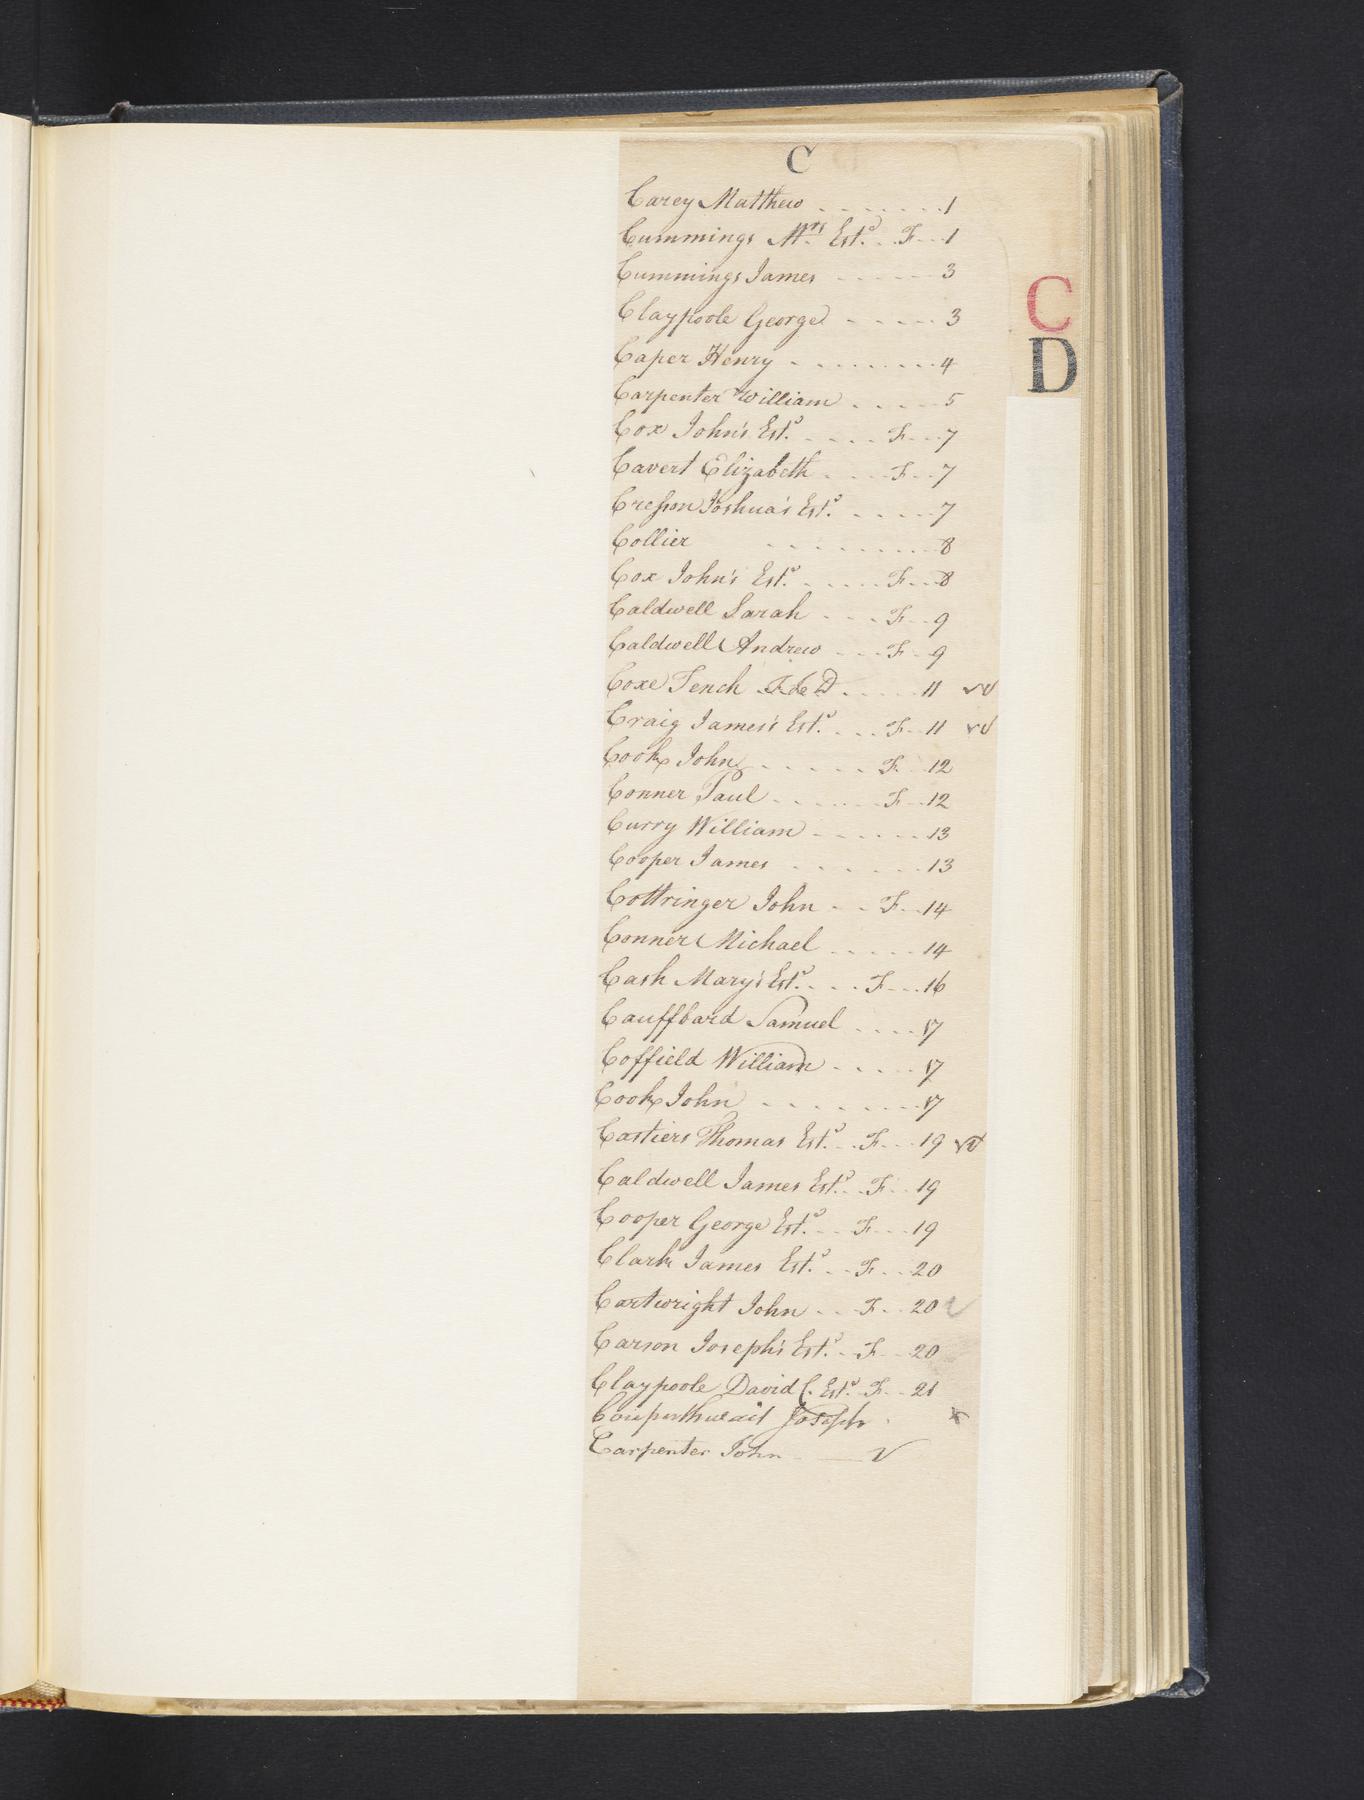 C
Carey Matthew . . . . . . . . 1
Cummings Mrs Est.e . . F . . 1
Cummings James . . . . . . 3
Claypoole George . . . . . 3
Caper Henry . . . . . . . . . 4
Carpenter William . . . . 5
Cox John's Est.e . . . . F . . . 7
Cavert Elizabeth . . . . F . . 7
Cresson Joshua's Est.e . . . . 7
Collier . . . . . . . . . . 8
Cox John's Est.e . . . . . F . . . 8
Caldwell Sarah . . . F . . 9
Caldwell Andrew . . . F . . 9
Coxe Tench F. & D . . . . . 11
Craig James's Est.e . . . F . . 11
Cook John . . . . . . F . . 12
Conner Paul . . . . . . F . . 12
Curry William . . . . . . 13
Cooper James . . . . . . . 13
Cottringer John . . . F . . 14
Conner Michael . . . . . 14
Cash Mary's Est.e . . . F . . . 16
Cauffbard Samuel . . . . 17
Coffield William . . . . . 17
Cook John . . . . . . . . 17
Castiers Thomas Est.e . . F . . . 19
Caldwell James Est.e . . F . . 19
Cooper George Est.e . . . F . . . 19
Clark James Est.e . . . F . . . 20
Cartwright John . . . F . . 20
Carson Joseph's Est.e . . F . . 20
Claypoole David C. Est.e F . . 21
Joseph
Carpenter John
C
D